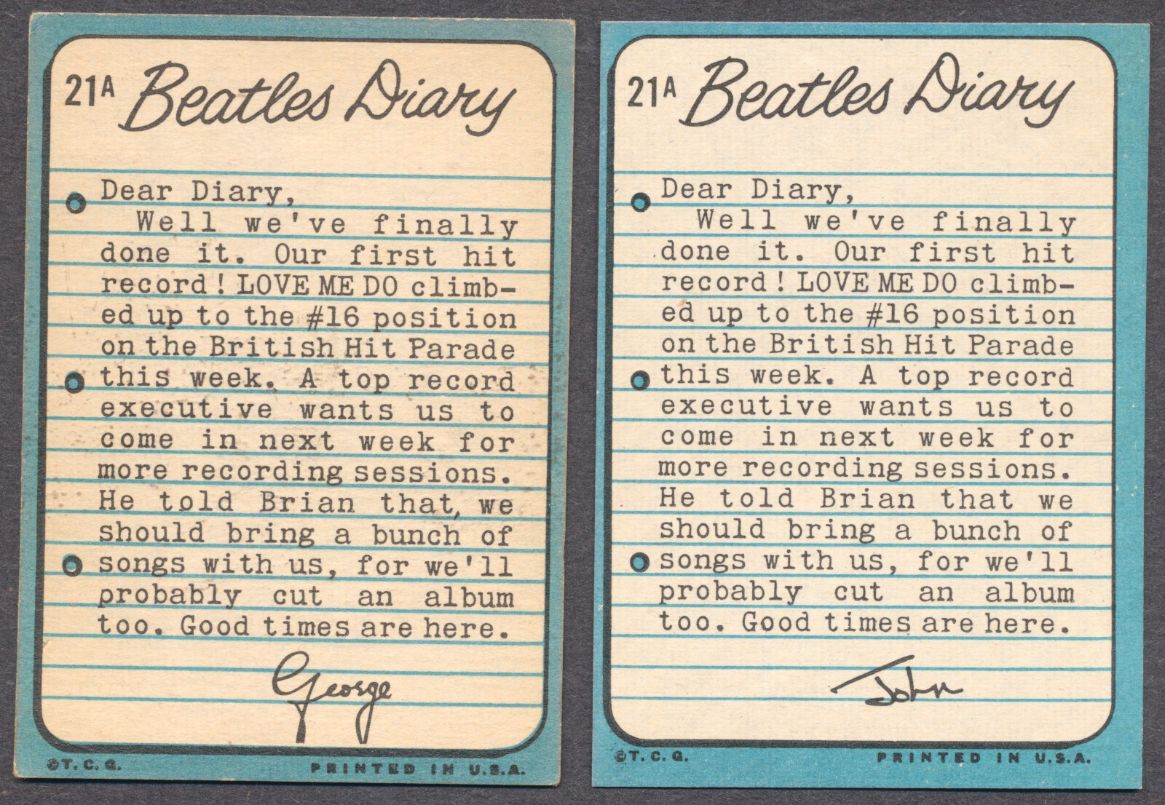 21A Beatles Diary
Dear Diary,
Well we've finally
done it. Our first hit
record! LOVE ME DO climb-
ed up to the #16 position
on the British Hit Parade
this week. A top record
executive wants us to
come in next week for
more recording sessions.
He told Brian that, we
should bring a bunch of
songs with us, for we'll
probably cut an album
too. Good times are here.
George
©T.C.G. PRINTED IN U.S.A.
21A Beatles Diary
Dear Diary,
Well we've finally
done it. Our first hit
record! LOVE ME DO climb-
ed up to the #16 position
on the British Hit Parade
this week. A top record
executive wants us to
come in next week for
more recording sessions.
He told Brian that we
should bring a bunch of
songs with us, for we'll
probably cut an album
too. Good times are here.
John
©T.C.G. PRINTED IN U.S.A.